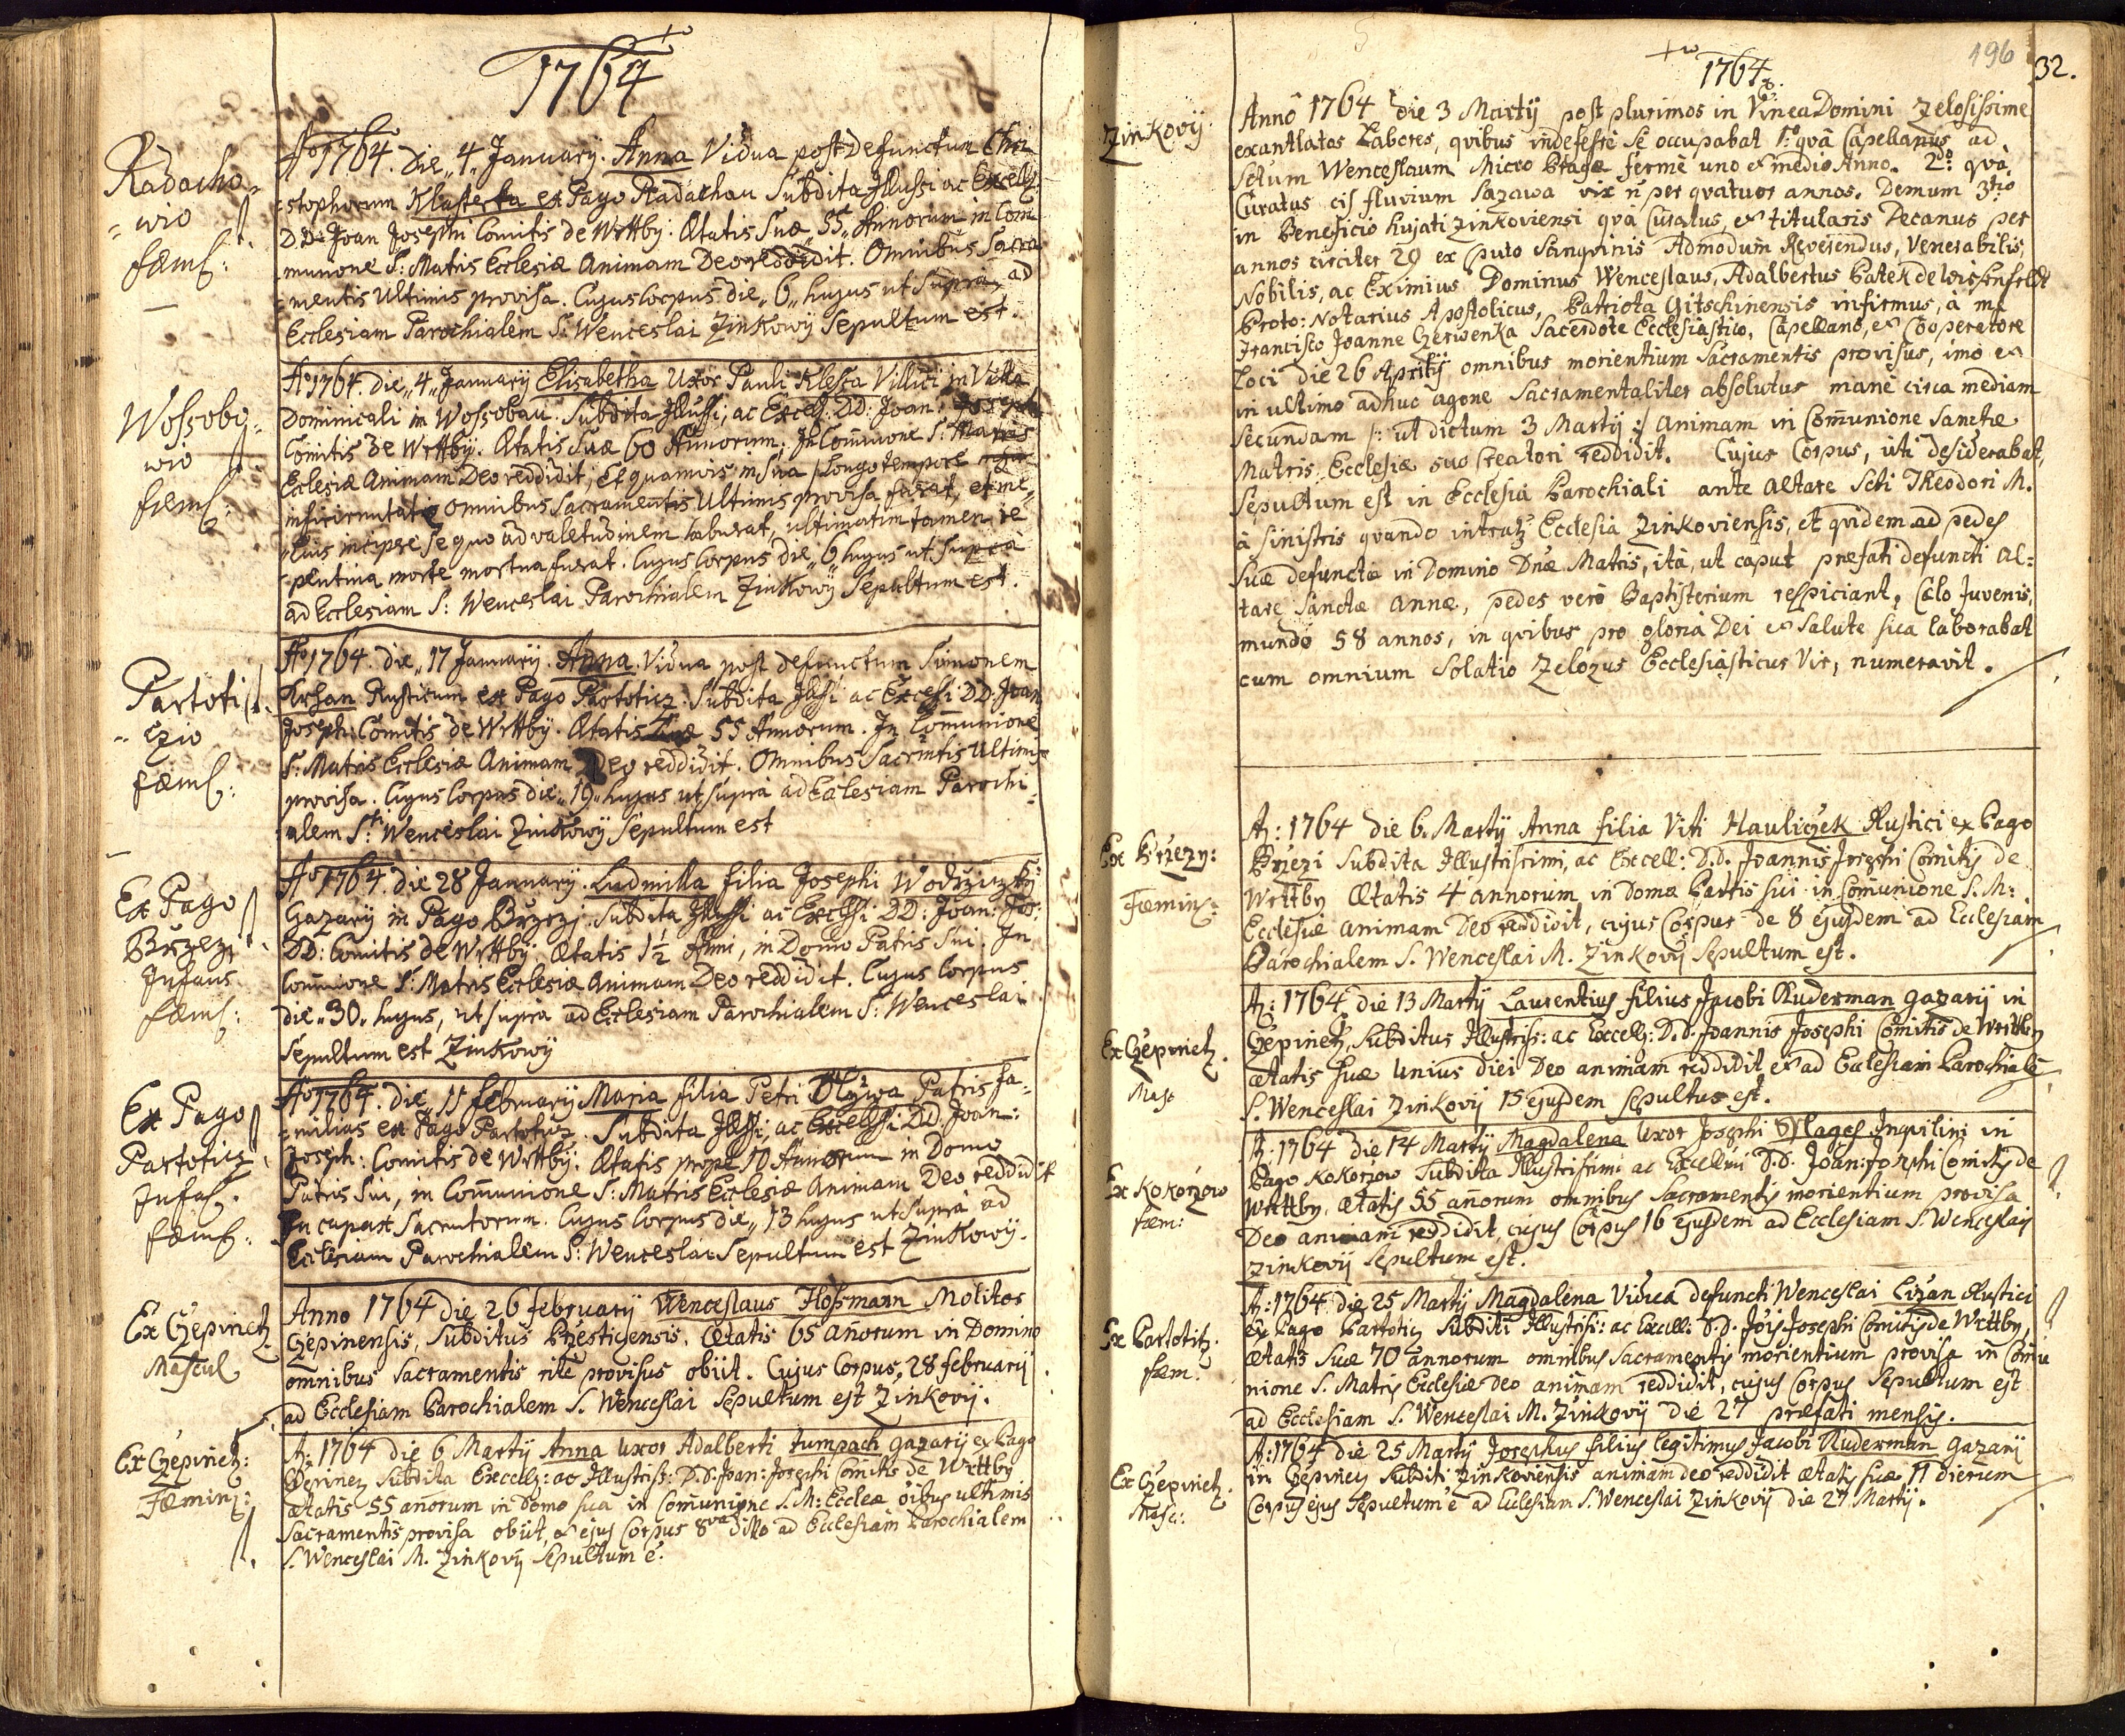 1764
Radacho=
=wio
fæmſ:
Aº 1764. Die „4„ January. Anna Vidua post Defunctum Chri
=stophorum Klasterka ex Pago Radachau Subdita Illussi ac Excells:
DD: Joan Josephi Comitis de Wrttby. Ætatis Suæ „55„ Annorum in Com
=munione S: Matris Ecclesiæ Animam Deo reddidit. Omnibus Sacra
=mentis Ultimis provisa. Cujus Corpus die „6„ hujus ut supra, ad
Ecclesiam Parochialem S: Wenceslai Zinkowÿ Sepultum est.
Woſsobo=
wio
fæmſ:
Aº 1764. die „4„ Januarij Elisabetha Uxor Pauli Kleſta Villici in Villa
Dominicali in Woſsobau. Subdita Illussi, ac Excels: DD: Joan: Joseph
Comitis De Wrttby. Ætatis Suæ 60 Annorum. In Com̄unione S: Matris
Ecclesiæ Animam Deo reddidit, Et quamvis in Sua longo tempore
infirimitate omnibus Sacramentis Ultimis provisa fuerat, et me
=lius incipere se quo ad valetudinem habuerat, ultimatim tamen re
=pentina morte mortua fuerat. Cujus Corpus die „6„ hujus ut supra
ad Ecclesiam S: Wenceslai Parochialem Zinkowÿ Sepultum est.
Partoti
=czio
fæmſ:
Aº 1764. die „17 Januarij. Anna. Vidua post defunctum Simonem
Krſan Rusticum ex Pago Partoticz. Subdita Illssi ac Excelssi DD: Joan
Joseph: Comitis de Wrttby. Ætatis Suæ 55 Annorum. In Com̄unione
S: Matris Ecclesiæ Animam Deo reddidit. Omnibus Sacrmtis Ultimis
provisa. Cujus Corpus die „19„ hujus ut supra ad Ecclesiam Parochi=
=alem Sti Wenceslai Zinkowÿ Sepultum est
Ex Pago
Brzezj
Infans
fæmſ:
Aº 1764. die 28 Januarij. Ludmilla filia Josephi Wodržiczky
Gazarij in Pago Brzezj. Subdita Illussi ac Excelssi DD: Joan: Jos:
DD: Comitis de Wrttby, Ætatis 1½ Anni, in Domo Patris Sui. In
Com̄uione S: Matris Ecclesiæ Animam Deo reddidit. Cujus Corpus
die „30„ hujus, ut supra ad Ecclesiam Parochialem S: Wenceslai
Sepultum est Zinkowÿ
Ex Pago
Partoticz
Infaſ.
fæmſ.
Aº 1764. die „11 februarij Maria filia Petri Oliwa Patris fa=
=milias ex Pago Partoticz. Subdita Illssi, ac Excelssi DD: Joan:
Joseph: Comitis de Wrttby. Ætatis prope 10 Annorum in Domo
Patris Sui, in Com̄unione S: Matris Ecclesiæ Animam Deo reddidit
In capax Sacrmtorum. Cujus Corpus die „13 hujus ut supra ad
Ecclesiam Parochialem S: Wenceslai Sepultum est Zinkowÿ.
Ex Czepinetz.
Mascul
Anno 1764 die 26 februarij Wenceslaus Hoſsmann Molitor
Czepinensis, Subditus Przesticensis, Ætatis 65 añorum in Domino
omnibus Sacramentis rite provisus obiit. Cujus Corpus, 28 februarij
ad Ecclesiam Parochialem S. Wenceslai Sepultum est Zinkovij.
Ex Czepinetz:
Fæmin:
A: 1764 die 6 Martij Anna uxor Adalberti Tumpach gazarij ex Pago
Czepinez Subdita Excells: ac Illustriss: D.D. Joan: Josephi Comitis de Wrttby
ætatis 55 añorum in Domo sua in Com̄unione S.M: Eccleæ oībus ultimis
Sacramentis provisa obiit, & ejus Corpus 8va ditto ad Ecclesiam Parochialem
S. Wenceslai M. Zinkovij Sepultum ē.
196
32.
1764
Zinkovij
Anno 1764 die 3 Martij post plurimos in Vinea Domini Zelosissime
exantlatos Labores, quibus indefesse se occupabat 1º quâ Capellanus ad
Sctum Wenceslaum Micro Pragæ fermè uno & medio Anno. 2dò quâ
Curatus cis fluvium Sazawa vix ñ per quatuor annos. Demum 3tiò
in beneficio hujati Zinkoviensi quâ Curatus, & titularis Decanus per
annos circiter 20 ex sputo sanguinis Admodum Reverendus, Venerabilis,
Nobilis, ac Eximius Dominus Wenceslaus, Adalbertus Patek de Weissenfeldt
Proto: Notarius Apostolicus, Patriota Gitschinensis infirmus, à me
Francisco Joanne Czerwenka Sacerdote Ecclesiastico, Capellano, & Cooperatore
Loci die 26 Aprilij omnibus morientium sacramentis provisus, imò &
in ultimo adhuc agone Sacramentaliter absolutus manè circa mediam
secundam /: ut dictum 3 Martij :/ Animam in Com̄unione Sanctæ
Matris Ecclesiæ suo Creatori reddidit. Cujus Corpus, uti desiderabat,
Sepultum est in Ecclesia Parochiali ante altare Scti Theodori M.
à sinistris quando intratur Ecclesia Zinkoviensis, et quidem ad pedes
suæ defunctæ in Domino Dnæ Matris, ità, ut caput præfati defuncti al=
tare Sanctæ Annæ, pedes verò Baptisterium respiciant, Cælo Juvenis,
mundo 58 annos, in quibus pro gloria Dei & salute sua laborabat
cum omnium solatio Zelozus Ecclesiasticus Vir, numeravit.
Ex Brzezy:
Fæmin:
A: 1764 die 6. Martij Anna filia Viti Hauliczek Rustici ex Pago
Brzezi Subdita Illustrissimi, ac Excell: D.D. Joannis Josephi Comitis de
Wrttby Ætatis 4 annorum in Domo Patris sui in Com̄unione S. M:
Ecclesiæ animam Deo reddidit, cujus Corpus de 8 ejusdem ad Ecclesiam
Parochialem S. Wenceslai M. Zinkovij Sepultum est.
Ex Czepinetz.
Masc
A: 1764 die 13 Martij Laurentius filius Jacobi Ruderman gazarij in
Czepinetz, Subditus Illustris: ac Excell: D.D. Joannis Josephi Comitis de Wrttby
ætatis suæ unius diei Deo animam reddidit & ad Ecclesiam Parochialē
S. Wenceslai Zinkovij 15 ejusdem sepultus est.
Ex Kokorzow
fæm:
A: 1764 die 14 Martij Magdalena Uxor Josephi Inquilini in
Pago Kokorzow Subdita Illustrissimi ac Excellmi D.D. Joan: Josephi Comitis de
Wrttby, ætatis 55 añorum omnibus Sacramentis morientium provisa
Deo animam reddidit, cujus Corpus 16 ejusdem ad Ecclesiam S. Wenceslai
Zinkovij Sepultum est.
Ex Partotitz.
fæm.
A: 1764 die 25 Martij Magdalena Vidua defuncti Wenceslai Rustici
ex Pago Partoticz Subditi Illustrisi: ac Excell: D.D. Jois Josephi Comitis de Wrttby,
ætatis suæ 70 annorum omnibus sacramentis morientium provisa in Com̄u
nione S. Matris Ecclesiæ Deo animam reddidit, cujus Corpus Sepultum est
ad Ecclesiam S. Wenceslai M. Zinkovij die 27 præfati mensis.
Ex Czepinetz.
Masc:
A: 1764 die 25 Martij Josephus filius legitimus Jacobi Ruderman Gazarij
in Czepinez Subditi Zinkoviensis animam deo reddidit ætatis suæ 11 dierum
Corpus ejus Sepultum ē ad Ecclesiam S. Wenceslai Zinkovij die 27 Martij.